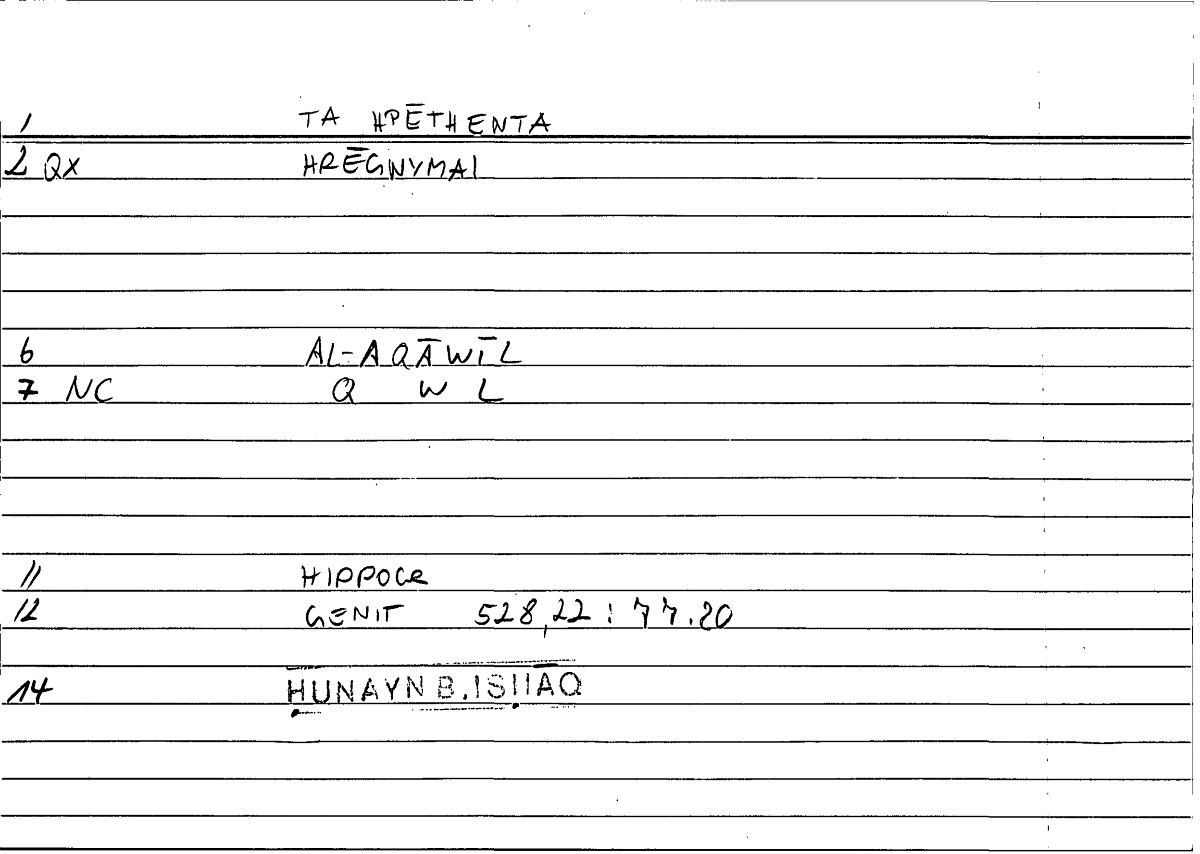 1 TA HPĒTHENTA
2 QX HRĒGNYMAI
6 AL-AQĀWĪL
7 NC Q W L
11 HIPPOCR
12 GENIT 528,22 : 77.20
14 ḤUNAYN B.ISḤĀQ